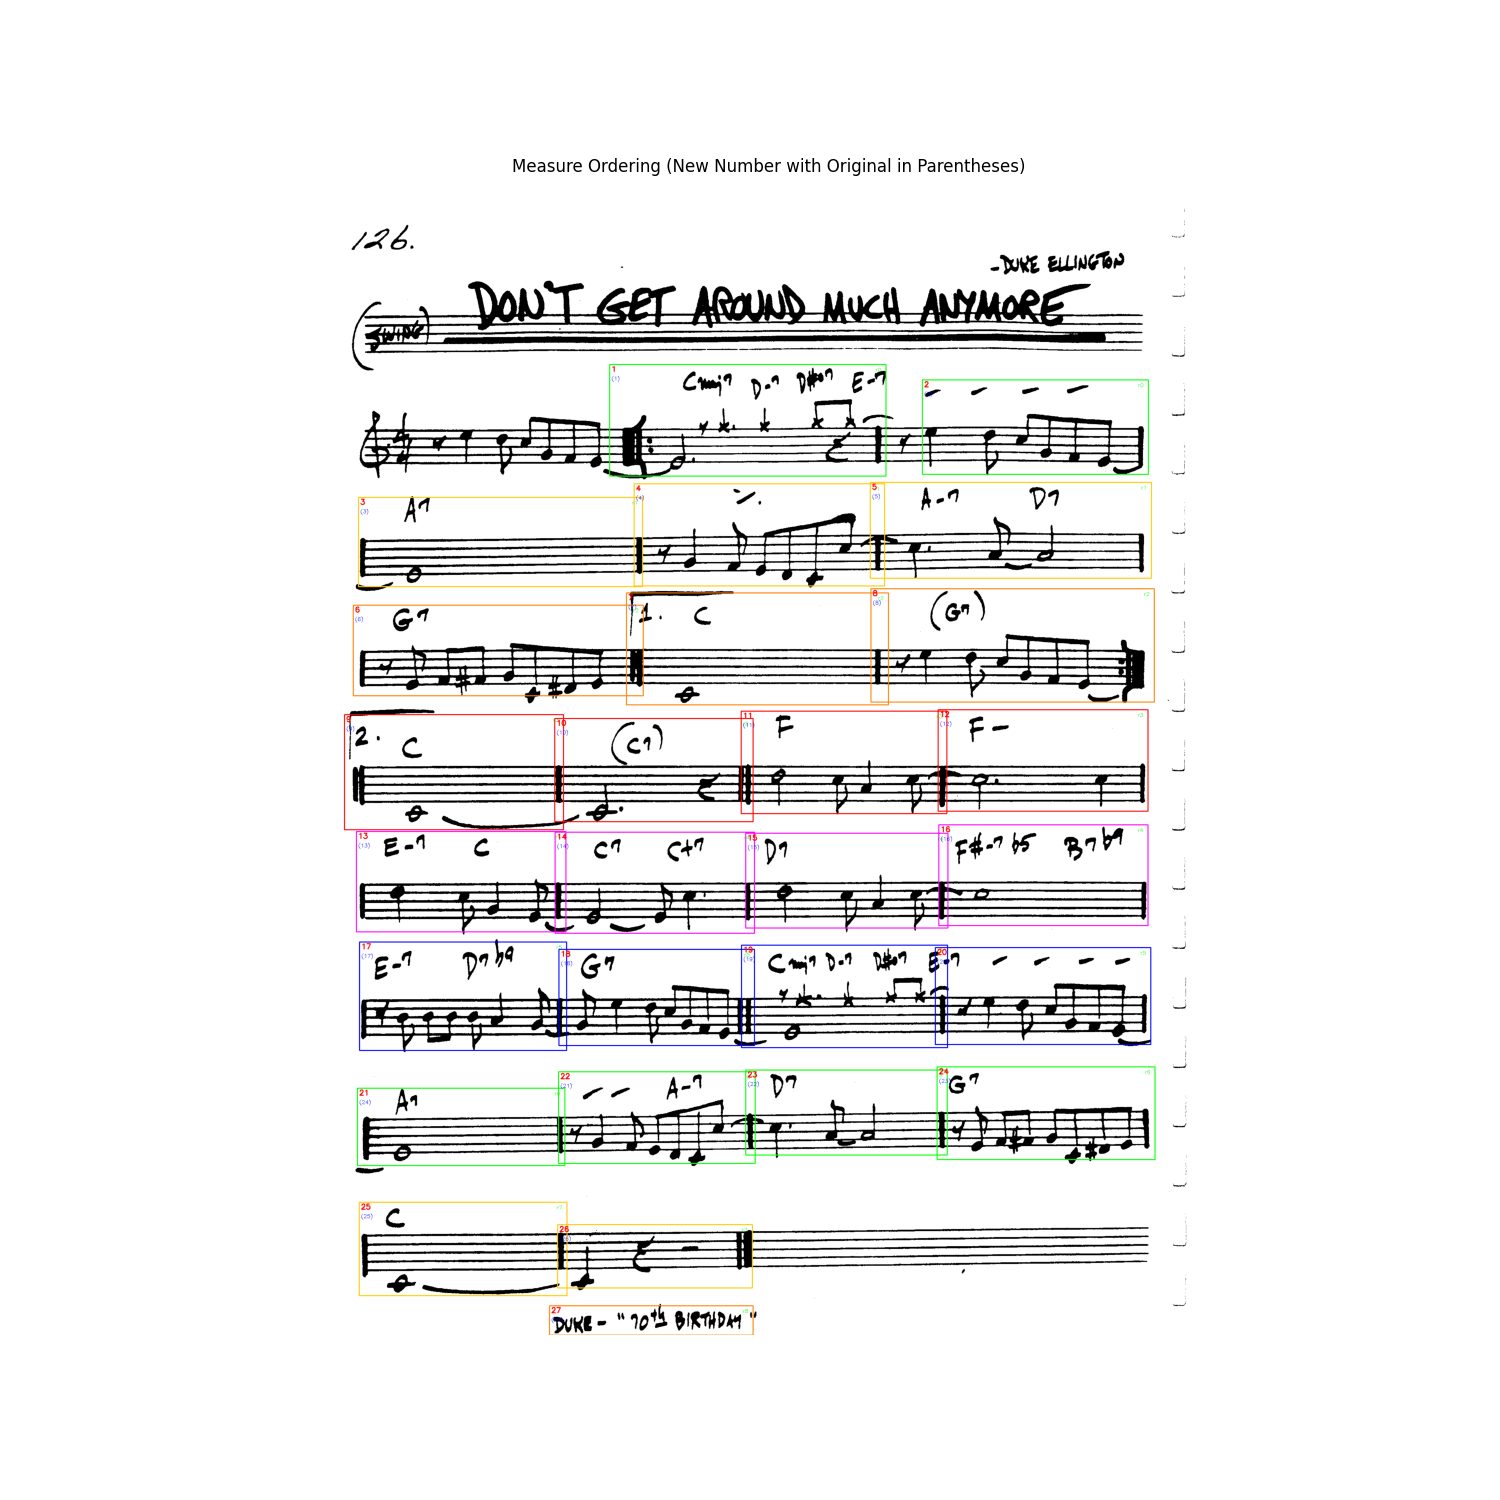 Measure Ordering (New Number with Original in Parentheses)
126.
-DUKE ELLINGTON
DON'T GET AROUND MUCH ANYMORE
(SWING)
1 (1) Cmaj7 D-7 D#o7 E-7 2 - - - -
3 (3) A7 4 (4) 5 (5) A-7 D7
6 (6) G7 1. C 8 (8) (G7)
2. C 10 (10) (C7) 11 (11) F 12 (12) F-
13 (13) E-7 C 14 (14) C7 C+7 15 (15) D7 16 (16) F#-7 b5 B7 b9
17 (17) E-7 D7 b9 18 (18) G7 19 (19) Cmaj7 D-7 D#o7 E-7 20 - - - -
21 (24) A7 22 (21) - - A-7 23 (22) D7 24 (23) G7
25 (25) C 26
27
DUKE - "70th BIRTHDAY"